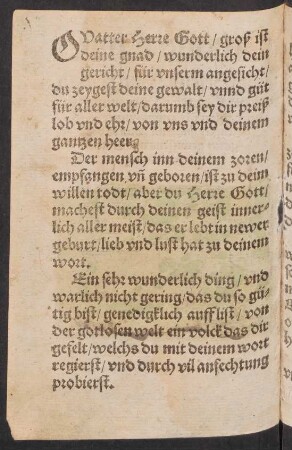 O Vatter Herre Gott / groß ist
deine gnad / wunderlich dein
gericht / für vnserm angesicht /
du zeygest deine gewalt / vnnd güt
für aller welt / darumb sey dir preiß
lob vnd ehr / von vns vnd deinem
gantzen heer.
Der mensch inn deinem zoren /
empfangen vñ geboren / ist zu deim
willen todt / aber du Herre Gott /
machest durch deinen geist inner-
lich aller meist / das er lebt in newer
geburt / lieb vnd lust hat zu deinem
wort.
Ein sehr wunderlich ding / vnd
warlich nicht gering / das du so gü-
tig bist / genedigklich auff list / von
der gotlosen welt ein volck das dir
gefelt / welchs du mit deinem wort
regierst / vnd durch vil anfechtung
probierst.